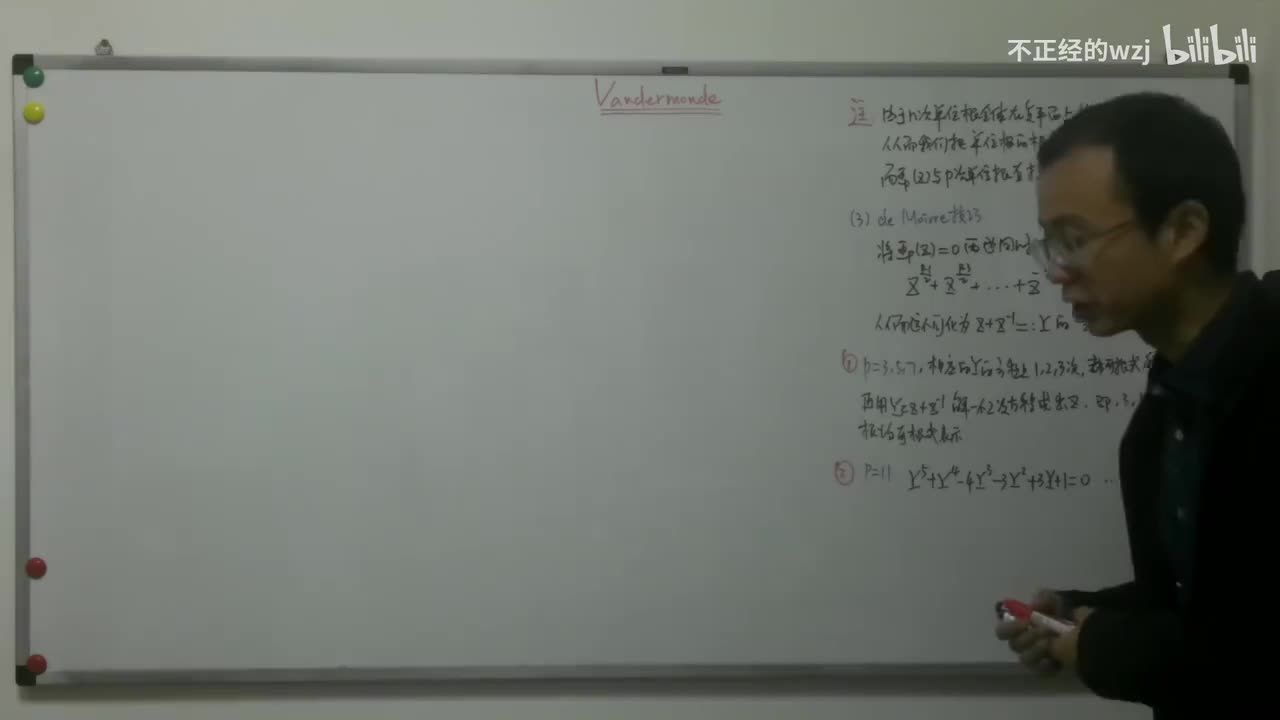 不正经的wzj bilibili
Vandermonde
注 由于n次单位根全体在复平面上
从而我们把单位根的
而Φp(Z)与p次单位根
(3) de Moivre技巧
将Φp(Z)=0两边同时
Z^{\frac{p-1}{2}}+Z^{\frac{p-3}{2}}+⋯+Z
从而这个可化为 Z+Z^{-1}=:Y 的
① p=3,5,7,相应的Y的方程是1,2,3次,都可根式
再用Y=Z+Z^{-1} 解一个2次方程求出Z. 即,3,
根均可根式表示
② P=11 Y^5+Y^4-4Y^3-3Y^2+3Y+1=0 ⋯